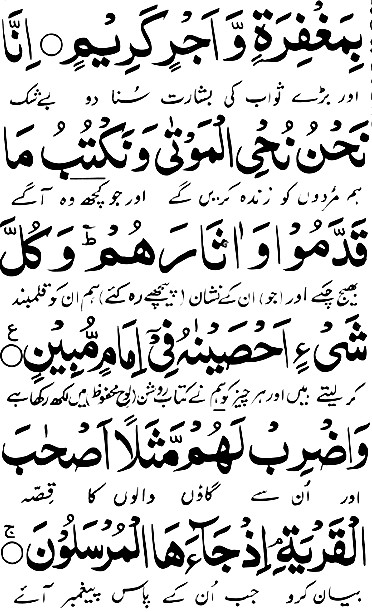 بِمَغْفِرَةٍ وَّاَجْرٍ كَرِيْمٍ ○ اِنَّا
اور بڑے ثواب کی بشارت سنا دو بےشک
نَحْنُ نُحْيِ الْمَوْتٰى وَنَكْتُبُ مَا
ہم مردوں کو زندہ کریں گے اور جو کچھ وہ آگے
قَدَّمُوْا وَاٰثَارَهُمْ ؕ وَكُلَّ
بھیج چکے اور (جو) ان کے نشان (پیچھے رہ گئے) ہم ان کو قلمبند
شَيْءٍ اَحْصَيْنٰهُ فِيْٓ اِمَامٍ مُّبِيْنٍ ○ ع
کر لیتے ہیں اور ہر چیز کو ہم نے کتاب روشن (لوح محفوظ) میں لکھ رکھا ہے
وَاضْرِبْ لَهُمْ مَّثَلًا اَصْحٰبَ
اور اُن سے گاؤں والوں کا قصّہ
الْقَرْيَةِ ۘ اِذْ جَآءَهَا الْمُرْسَلُوْنَ ○ ج
بیان کرو جب اُن کے پاس پیغمبر آئے